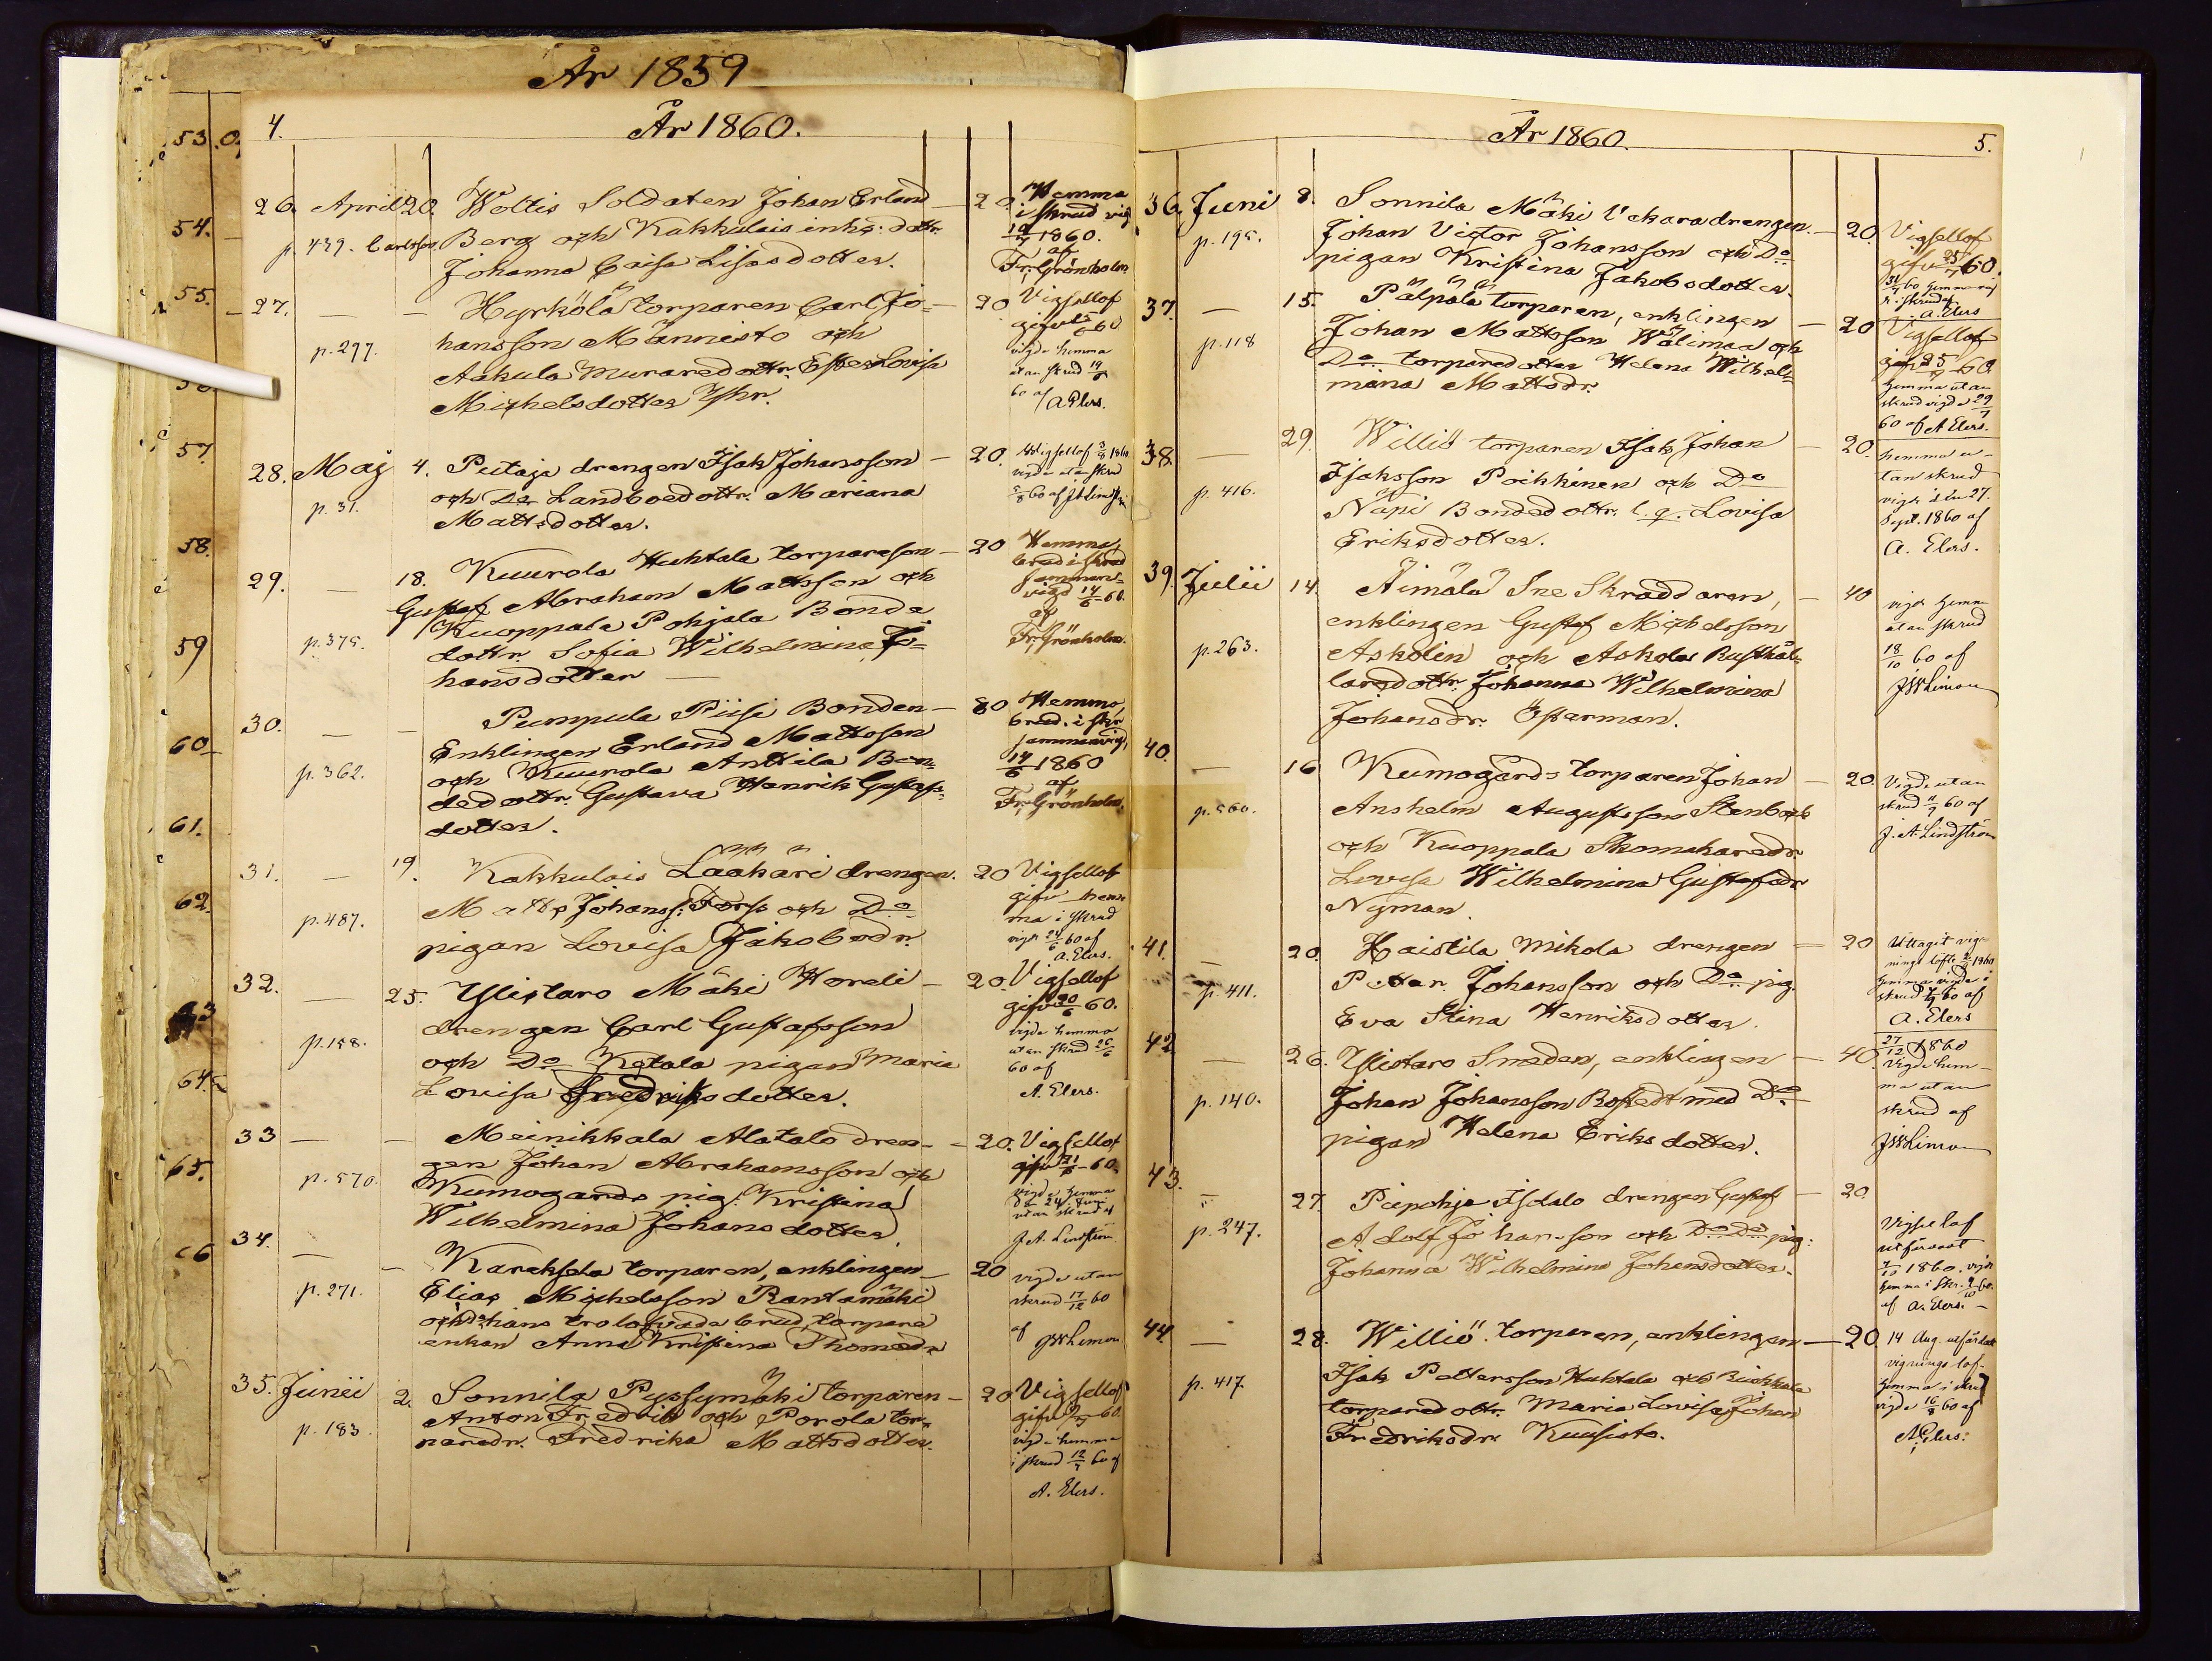 År 1859
53.
54.
55.
57.
58.
59
60
61.
62.
63
64.
65.
66
4.
År 1860.
26. April 20. Woltis Soldaten Johan Erland — 20. Hemma
i skrud vigd
p. 439. Carlsson Berg och Kakkulais inhs: dottr. 1860.
af
Johanna Caisa Lisasdotter. Fr. Grönholm
27. — — Hyrkölä torparen Carl Jo= — 20 Vigsellof
gifvet 60
p. 297. hansson Männisto och vigde hemma
Aakula Muraredottr. Ester Lovisa utan skrud
Michelsdotter Yhr. 60 af A Elers.
28. Maj 4. Peitaja drengen Isak Johansson — 20. Vigsellof 1860
vigde utan skrud
p. 31. och Do Landboedottr. Mariana 60 af JA Lindström
Mattsdotter.
29. — 18. Kuurola Huhtala torpareson — 20 Hemma,
brud i skrud
Gustaf Abraham Mattsson och samman=
vigd 14/6 60.
p. 375. Kuoppala Pohjala Bonde af
dottr. Sofia Wilhelmina Jo= Fr. Grönholm.
hansdotter —
30. — — Pumpula Piisi Bonden — 80 Hemma,
brud. i skr
Enklingen Erland Mattsson sammanvigd,
p. 362. och Kuurola Anttila Bon= 14/6 1860
dedottr. Gustava Henrik Gustafs= af
dotter. Fr. Grönholm.
31. — 19. Kakkulais Lääkäri drengen. 20 Vigsellof
p. 487. Matts Johanss: Fors och Do gifv hem
ma i skrud
pigan Lovisa Jakobsdr. vigde 24/6 60 af
A. Elers.
32. — 25. Ylistaro Mäki Horeli — 20. Vigsellof
drengen Carl Gustafsson gifv 60.
p. 158. och Do Kotala pigan Maria vigde hemma
utan skrud
Lovisa Fredriksdotter. 60 af
A. Elers.
33 — — Meinikkala Alatalo dren= — 20. Vigsellof
gen Johan Abrahamsson och gifv 60.
p. 570. Kumogårds pig. Kristina vigde hemma
24. Juni
Wilhelmina Johansdotter. utan skrud af
J. A. Lindström
34. — — Karaksela torparen, enklingen — 20
vigde utan
p. 271. Elias Michelsson Rantamäki skrud 17/12 60
och Do hans trolofvade brud, torpare af
enkan Anna Kristina Thomasdr JWLimon
35. Junii 2. Sonnila Pyssymäki torparen — 20 Vigsellof
p. 183. Anton Fredrik och Porola tor= gifv 60.
paredr. Fredrika Mattsdotter. vigde hemma
i skrud 12/7 60 af
A. Elers.
År 1860. 5.
36. Juni 8. Sonnila Mäki Vakara drengen. — 20. Vigsellof
p. 195. Johan Victor Johansson och Do gifv 25/7 60.
pigan Kristina Jakobsdotter. 60 hemma vigd
i skrud af
A. Elers
37. — 15. Pälpälä torparen, enklingen — 20 Vigsellof
p. 118 Johan Mattsson Wälimaa och gifv 60
Do torparedotter Helena Wilhel= hemma utan
mina Mattsdr. skrud vigde 29/7
60 af A Elers.
38. — 29. Williö torparen Isak Johan — 20. hemma u=
p. 416. Isaksson Poikkinen och Do tan skrud
Näpi Bondedottr. l. q. Lovisa vigde den 27.
Eriksdotter. Sept. 1860 af
A. Elers.
39. Julii 14. Äimälä Sne Skräddaren, — 40 vigde hemma
enklingen Gustaf Michelsson utan skrud
p. 263. Askolin och Askola Rusthål= 18/10 60 af
laredottr. Johanna Wilhelmina JWLimon
Johansdr. Österman.
40. — 16 Kumogårds torparen Johan — 20. Vigde utan
p. 560. Anshelm Augustsson Stenbock skrud 11/9 60 af
och Kuoppala Skomakaredr J. A. Lindström
Lovisa Wilhelmina Gustafsdr
Nyman.
41. — 20. Haistila Mikola drengen — 20 Uttagit vig=
nings lofte 1860
p. 411. Petter Johansson och Do pig. hemma vigde i
skrud 60 af
Eva Stina Henriksdotter. A. Elers
42 — 26. Ylistaro Smeden, enklingen — 40. 27/12 1860
Vigde hem=
p. 140. Johan Johansson Rostedt med Do ma utan
pigan Helena Eriksdotter. skrud af
JWLimon
43. — 27. Piipohja Isotalo drengen Gustaf — 20
p. 247. Adolf Johansson och Do Do pig: Vigsel lof
utfärdat
Johanna Wilhelmina Johansdotter. 1860. vigde
hemma i skr. 60.
af A. Elers. —
44 — 28. Williö torparen, enklingen — 20 14 Aug. utfärdat
vignings lof=
p. 417. Isak Pettersson Huhtala och Ruokkala hemma i skrud
torparedottr. Maria Lovisa Johan vigde 16/8 60 af
Fredriksdr. Kuusisto. A Elers.